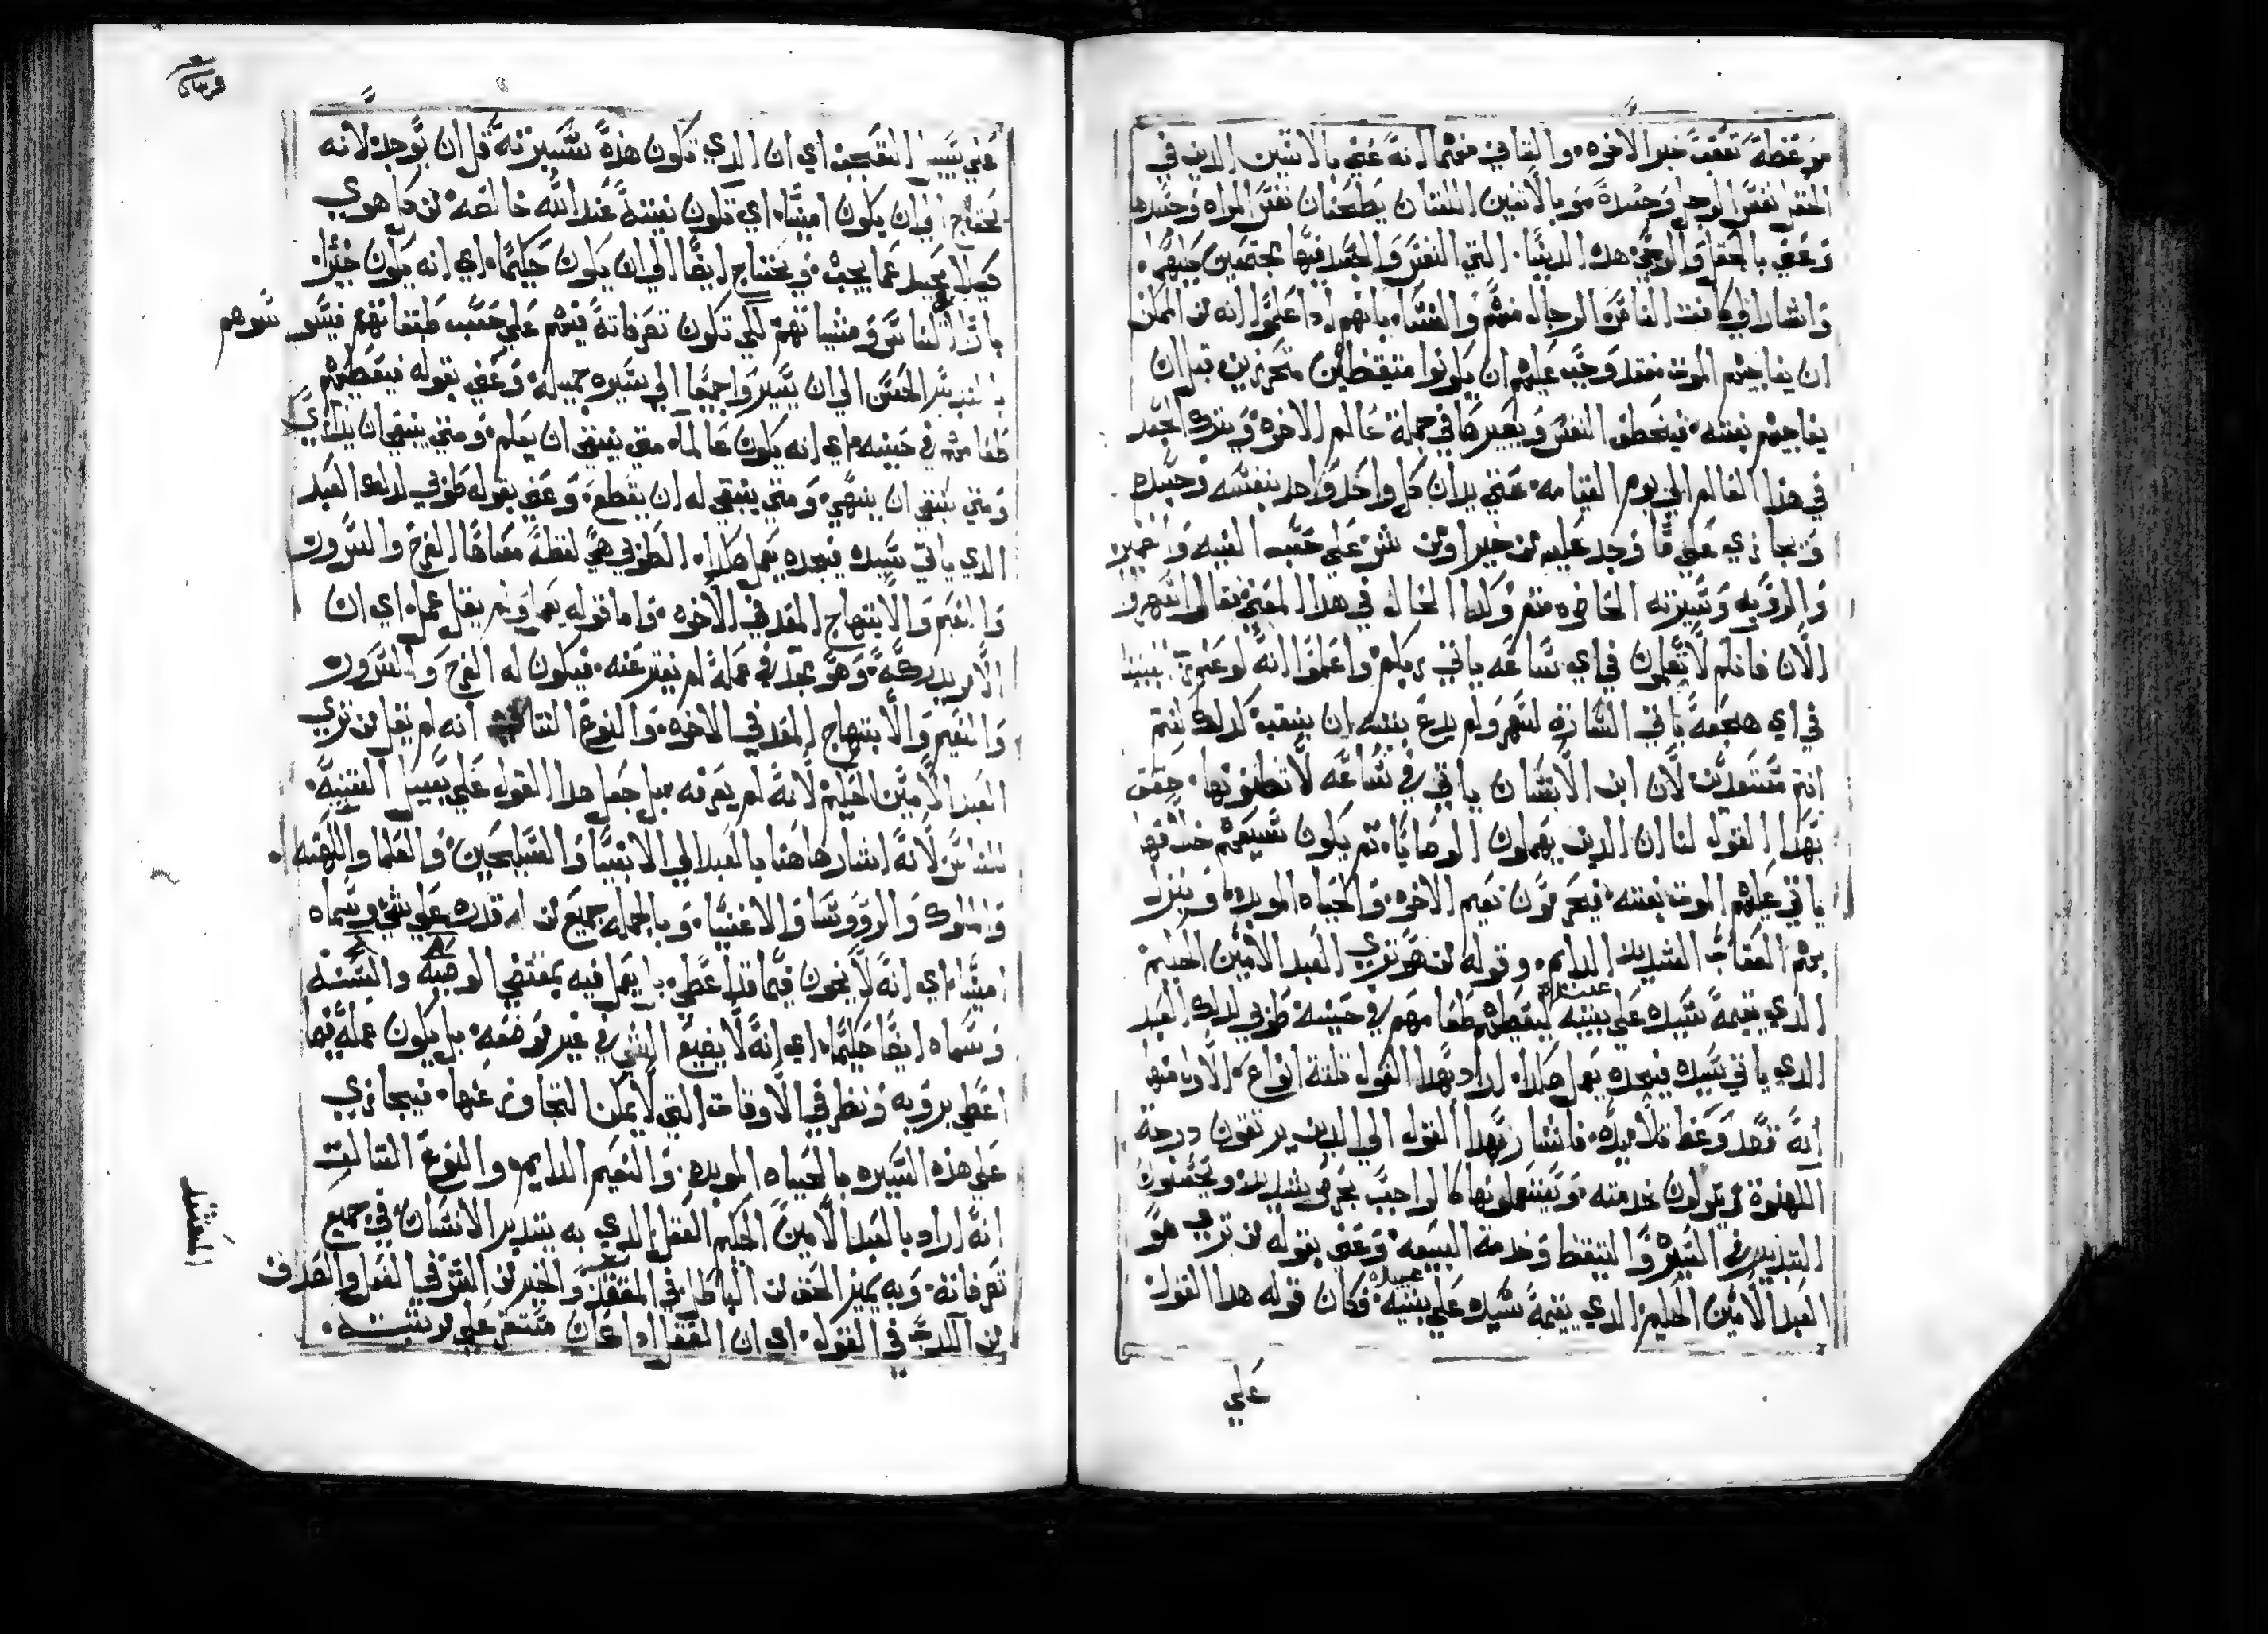 من عظة تعقب خبر الاخره. والثاني منهما انه عني بالاتنين الدين في
الحقل نفس الرجل وجسده وبالاتنين اللتان يطحنان نفس المراه وجسدها
وعني بالحقل والرحي هده الدنيا. التي النفس والجسد فيها مجتمعين كليهما.
واشار الي كافت الناس الرجال منهم والنسا. بانهم ادا علموا انه من الممكن
ان يفاجيهم الموت فقد وجب عليهم ان يكونوا متيقظين متحرزين قبل ان
يفاجيهم بغته. فيخطف النفس ويصيرها في جملة عالم الاخره ويترك الجسد
في هدا العالم الي يوم القيامه. عتيدان كل واحد واحد بنفسه وجسده
ويجازي علي ما وجد عليه من خير او من شر علي حسب النيه والضمير
والرويه وسيرته الحاضره
الان فانكم لا تعلمون في اي ساعه ياتي ربكم. واعلموا انه لو علم رب البيت
في اي هجعة ياتي السارق لسهر ولم يدع بيته ان ينقب. كدلك انتم
انتم مستعدين لان ابن الانسان ياتي في ساعه لا تظنونها. حقق
بهدا القول لنا ان الدين يهملون الوصايا. تم يكون
ياتي عليهم الموت بغته. فيحرمون نعيم الاخره. والحياه الموبده. وينزل
بهم العقاب الشديد الدايم. وقوله من هو تري العبد الامين الحليم
الدي يقيمه سيده علي بنيه عبيده ليعطيهم طعامهم في حينه. طوبي لدلك العبد
الدي ياتي سيده فيجده يعمل هكدا. اراد بهدا القول تلتة انواع. الاول منها
انه قصد وعظ تلاميده. فاشار بهدا القول الي الدين يرتقون درجة
الكهنوة ويتولون خدمته ويستعملونها كالواجب بحرص شديد
التدبير في السهر والتيقظ وخدمة البيعه. وعني بقوله من تري هو
العبد الامين الحليم الدي يقيمه سيده علي بنيه عبيده. فكان قوله هدا القول
علي
علي سبيل التعجب اي ان الدي تكون هده سيرته قل ان يوجد. لانه
يحتاج الي ان يكون امينا. اي تكون نفسه عند الله خالصه. من كل هوي
كيلا يحيد عما يجب. ويحتاج ايضا الي ان يكون حكيما. اي انه يكون خبيرا.
بامر الناس ونياتهم لكي تكون تصرفاته فيهم علي حسب طبقاتهم فيسوسوهم
بالتدبير الحسن الي ان يسيروا جميعا الي سيره جميله. وعني بقوله فيعطيهم
طعامهم في حينه. اي انه يكون عالما. متي ينبغي ان يعلم. ومتي ينبغي ان يداري
ومتي ينبغي ان ينهي. ومتي ينبغي له ان يقطع. وعني بقوله طوبي لدلك العبد
الدي ياتي سيده فيجده يعمل هكدا. الطوبي هي لفظة معناها الفرح والسرور
والنعيم والابتهاج المعد في الاخره. واما قوله يعمل ولم يقل عمل. اي ان
الامر يدركه. وهو مجد في عمله لم يفتر عنه. فيكون له الفرح والسرور
والنعيم والابتهاج المعد في الاخره. والنوع التاني انه لم يقل من تري
العبد الامين الحليم لانه لم يعرفه. بل جعل هدا القول علي سبيل التنبيه.
للناس لانه اشار هاهنا بالعبد الي الانبيا والمسيحيين. والعلما والكهنه.
والملوك والروسا والاغنيا. وبالجمله جميع من له قدره علي شي وسماه
امينا. اي انه لا يخون فيما قد اعطي. بل يعمل فيه بمقتضي الوصيه والسنه
وسماه ايضا حكيما. اي انه لا يضيع الشي في غير موضعه. بل يكون عمله فيما
اعطي برويه ونظر في الاوقات التي لا يمكن التجاوز عنها. فيجازي
علي هده السيره بالحياه الموبده. والنعيم الدايم. والنوع التالت
انه اراد بالعبد الامين الحكيم العقل الدي به يتدبر الانسان في جميع
تصرفاته. وبه يميز الحق من الباطل في المعتقد والخير من الشر في الفعل والصدق
من الكدب في القول. اي ان العقل ادا كان مستقر علي مرتبته.